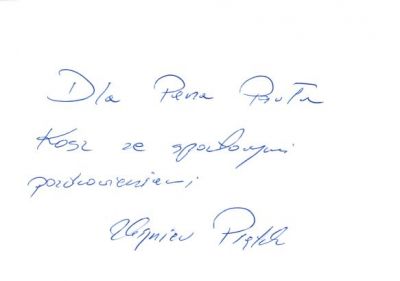 Dla Pana Pawła
Kosz ze sportowymi
pozdrowieniami
Zbigniew Piątek